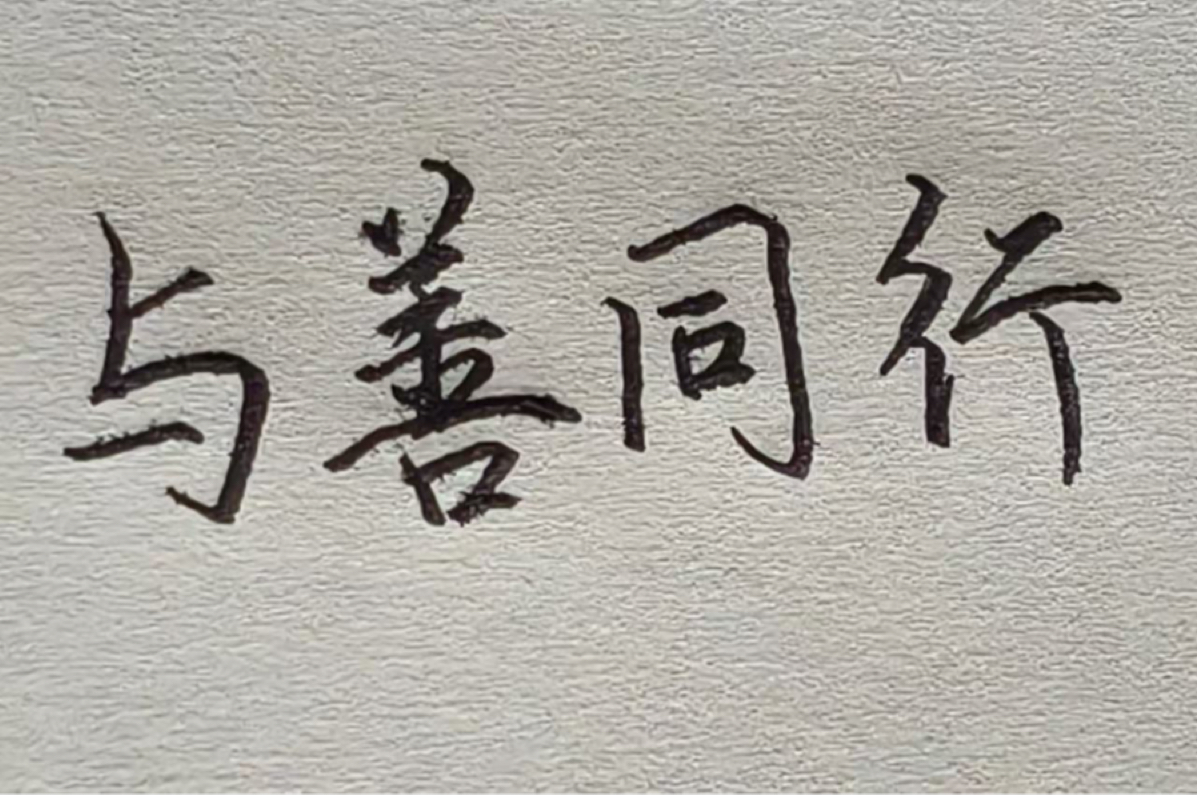 与善同行